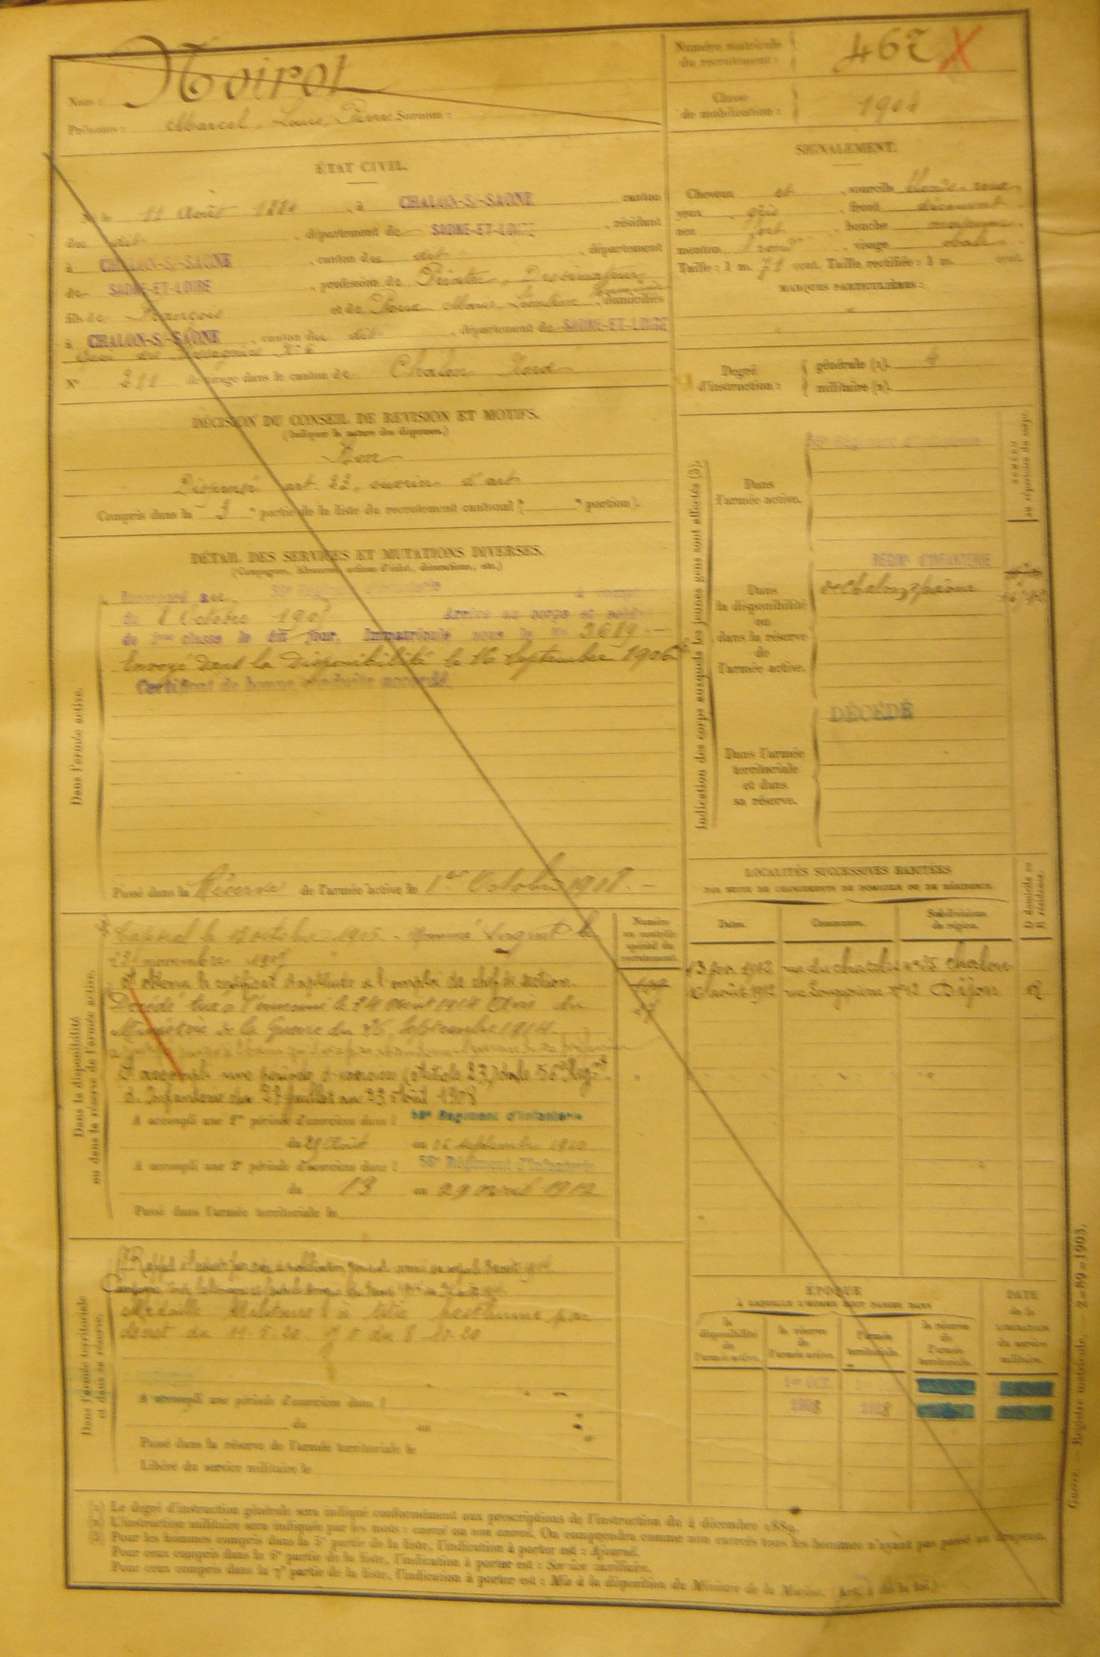 Nom : Noirot
Prénoms : Marcel, Louis, Pierre Surnoms :
Numéro matricule du recrutement : 467 X
Classe de mobilisation : 1904
ÉTAT CIVIL.
Né le 11 Août 1884, à CHALON-S/-SAONE canton
dudit, département de SAONE-ET-LOIRE, résidant
à CHALON-S/-SAONE, canton du dit, département
de SAONE-ET-LOIRE, profession de Peintre, Dessinateur
fils de François et de
à CHALON-S/-SAONE, canton du dit, département de SAONE-ET-LOIRE
N° 211 de tirage dans le canton de Chalon Nord
SIGNALEMENT.
Cheveux et sourcils
yeux gris, front découvert
nez fort, bouche moyenne
menton rond, visage ovale
Taille : 1 m. 71 cent. Taille rectifiée : 1 m. cent.
MARQUES PARTICULIÈRES :
Degré d'instruction : générale (1). militaire (2).
DÉCISION DU CONSEIL DE RÉVISION ET MOTIFS.
(Indiquer la nature des dispenses.)
Bon
Dispensé art. 23, ouvrier d'art
Compris dans la 3e partie de la liste du recrutement cantonal ( portion).
DÉTAIL DES SERVICES ET MUTATIONS DIVERSES.
(Campagnes, blessures, actions d'éclat, décorations, etc.)
Dans l'armée active.
Régiment d'Infanterie à compter
du 8 Octobre 1905 Arrivé au corps et soldat
de 2me classe le dit jour. Immatriculé sous le N° 3619.
Envoyé dans la Disponibilité le 16 Septembre 1906
Certificat de bonne conduite accordé
Passé dans la Réserve de l'armée active le 1er Octobre 1908.
Indication des corps auxquels les jeunes gens sont affectés (3).
Dans l'armée active.
Régiment d'Infanterie
Dans la disponibilité ou dans la réserve de l'armée active.
RÉGIM. D'INFANTERIE
de Chalon s/ Saône
Dans l'armée territoriale et dans sa réserve.
DÉCÉDÉ
LOCALITÉS SUCCESSIVES HABITÉES
PAR SUITE DE CHANGEMENTS DE DOMICILE OU DE RÉSIDENCE.
Dates. Communes. Subdivisions de région. D domicile ou R résidence.
13 fév. 1912 rue du Chatelet n° 25 Chalon
16 août 1912 rue Longepierre n° 42 Dijon R
Dans la disponibilité ou dans la réserve de l'armée active.
Numéro au contrôle spécial du recrutement.
Caporal le
23 novembre 1907
A obtenu le certificat d'aptitude à l'emploi de chef de section.
Décédé tué à l'ennemi le 24 Août 1914 Avis du
Ministère de la Guerre du 26 Septembre 1914
A accompli une période d'exercices (Article 23) dans le 56e Régmt
d'Infanterie du 27 Juillet au 23 Août 1908
A accompli une 1re période d'exercices dans l 56e Régiment d'Infanterie
du 29 Août au 16 Septembre 1910
A accompli une 2e période d'exercices dans l 56e Régiment d'Infanterie
du 13 au 29 avril 1912
Passé dans l'armée territoriale le
Dans l'armée territoriale et dans sa réserve.
Médaille Militaire à titre posthume par
décret du 11.5.20 J.O du 8.10.20
A accompli une période d'exercices dans l
du au
Passé dans la réserve de l'armée territoriale le
Libéré du service militaire le
ÉPOQUE
À LAQUELLE L'HOMME DOIT PASSER DANS
la disponibilité de l'armée active. la réserve de l'armée active. l'armée territoriale. la réserve de l'armée territoriale.
DATE de la LIBÉRATION du service militaire.
1er OCT.
1908 1918
(1) Le degré d'instruction générale sera indiqué conformément aux prescriptions de l'instruction du 4 décembre 1889.
(2) L'instruction militaire sera indiquée par les mots : exercé ou non exercé. On comprendra comme non exercés tous les hommes n'ayant pas passé au drapeau.
(3) Pour les hommes compris dans la 5e partie de la liste, l'indication à porter est : Ajourné.
Pour ceux compris dans la 6e partie de la liste, l'indication à porter est : Service auxiliaire.
Pour ceux compris dans la 7e partie de la liste, l'indication à porter est : Mis à la disposition du Ministre de la Marine. (Art. de la loi.)
Guerre. — Registre matricule. — 2-89-1903.